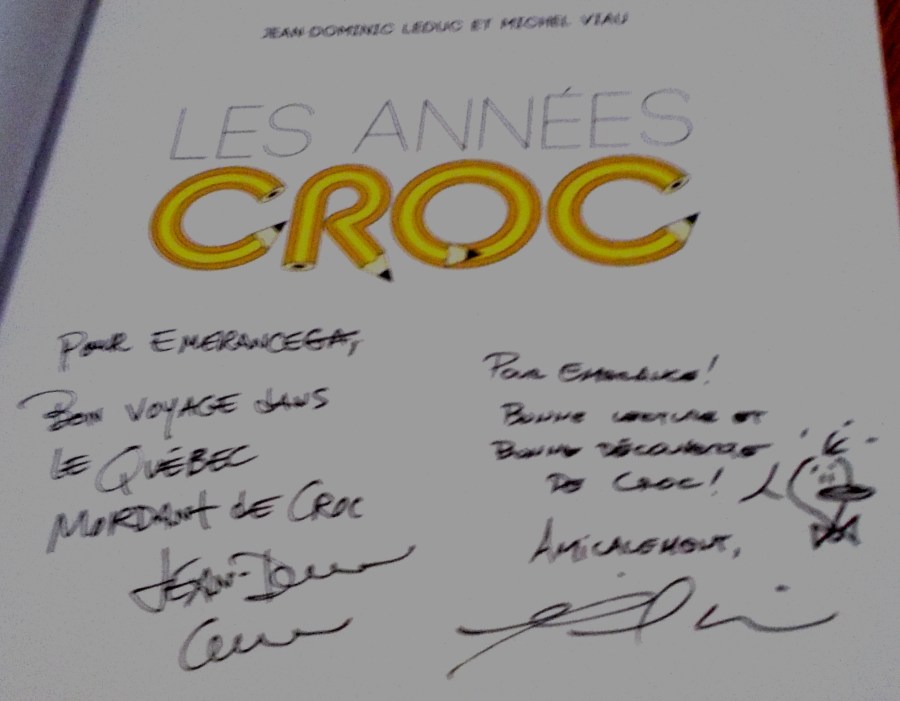 JEAN-DOMINIC LEDUC ET MICHEL VIAU
LES ANNÉES
CROC
POUR EMERANCE
BON VOYAGE DANS
LE QUÉBEC
MORDANT DE CROC
JEAN-DOMINIC
Pour Emerance!
BONNE LECTURE ET
BONNE DÉCOUVERTE
DE CROC!
AMICALEMENT,